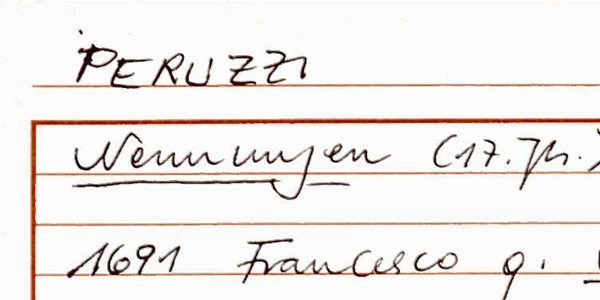 PERUZZI
Nennungen (17. Jh.)
1691 Francesco q.